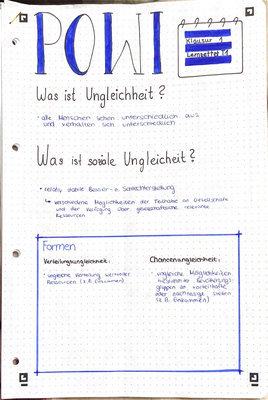 POWI
Klausur 1
Lernzettel
Was ist Ungleichheit?
• alle Menschen sehen unterschiedlich aus
und verhalten sich unterschiedlich
Was ist soziale Ungleicheit?
• relativ stabile Besser- o. Schlechterstellung
↳ verschiedene Möglichkeiten der Teilhabe an Gesellschaft
und der Verfügung über gesellschaftlich relevante
Ressourcen
Formen
Verteilungsungleichheit:
• ungleiche Verteilung wertvoller
Ressourcen (z.B. Einkommen)
Chancenungleichheit:
• ungleiche Möglichkeiten
bestimmter Bevölkerungs-
gruppen an vorteilhafte
oder nachteilige
(z.B. Einkommen)